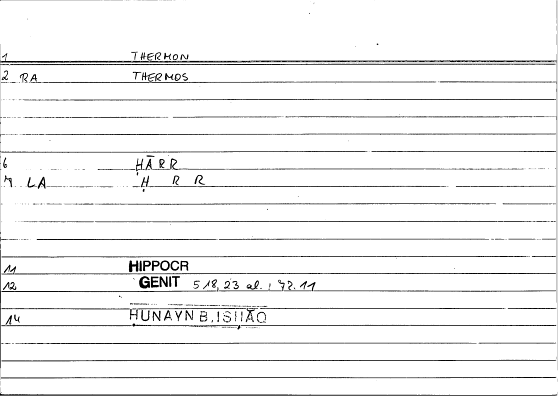 1 THERMON
2 RA THERMOS
6 ḤĀRR
7 LA Ḥ R R
11 HIPPOCR
12 GENIT 518, 23 al.; 42.11
14 ḤUNAYN B. ISḤĀQ